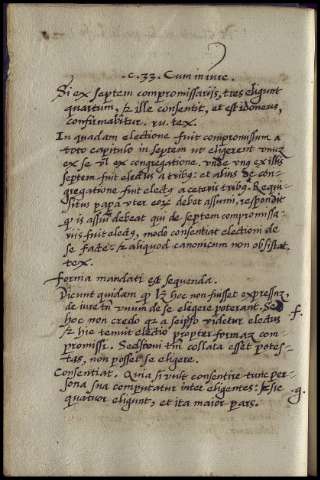 .c.33. Cum in iure.
Si ex septem compromissarijs, tres eligunt
quartum, & ille consentit, et est idoneus,
confirmabitur.
In quadam electione fuit compromissum a
toto capitulo in septem ut eligerent unuz
ex se vl ex congregatione. unde unq ex illis
septem fuit electus a tribq: et alius de con-
gregatione fuit electq a ceteris tribq. Requi-
situs papa uter eorum debet assumi, respondit
q is assui debeat qui de septem compromissa-
rijs fuit electq, modo consentiat electioni de
se factae: & aliquod canonicum non obsistat,
tex.
Forma mandati est sequenda.
Dicunt quidam q lz hoc non fuisset expressuz
de iure tn unum de se eligere poterant. Sed
hoc non credo qz a seipso videtur electus
& hic tenuit electio propter formaz com-
promissi. Sed si omni collata esset potes-
tas, non posset se eligere.
f.
Consentiat. Quia si vult consentire tunc per-
sona sua computatur inter eligentes: & sic
quatuor eligunt, et ita maior pars.
g.